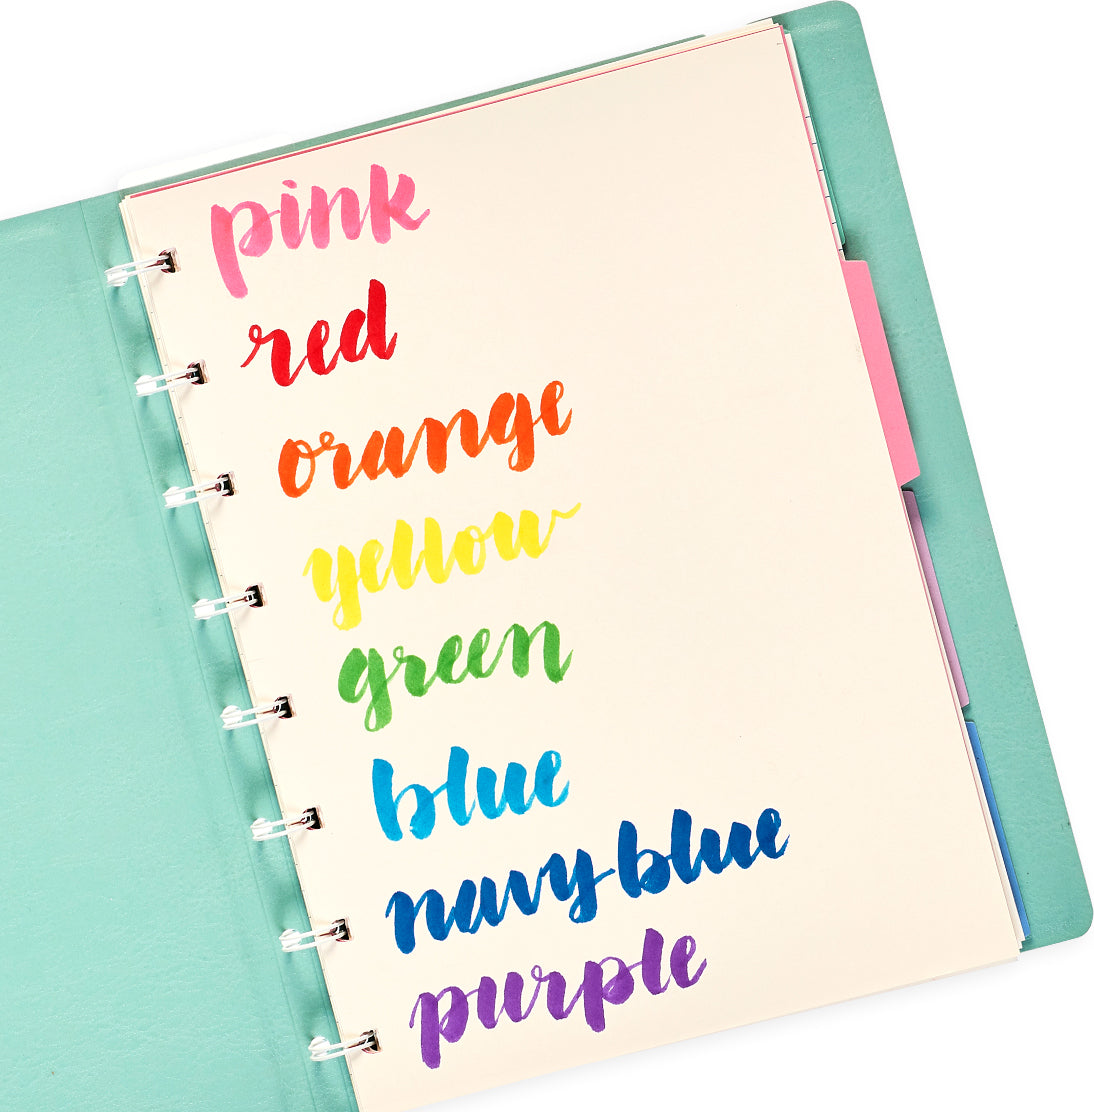 pink
red
orange
yellow
green
blue
navy blue
purple